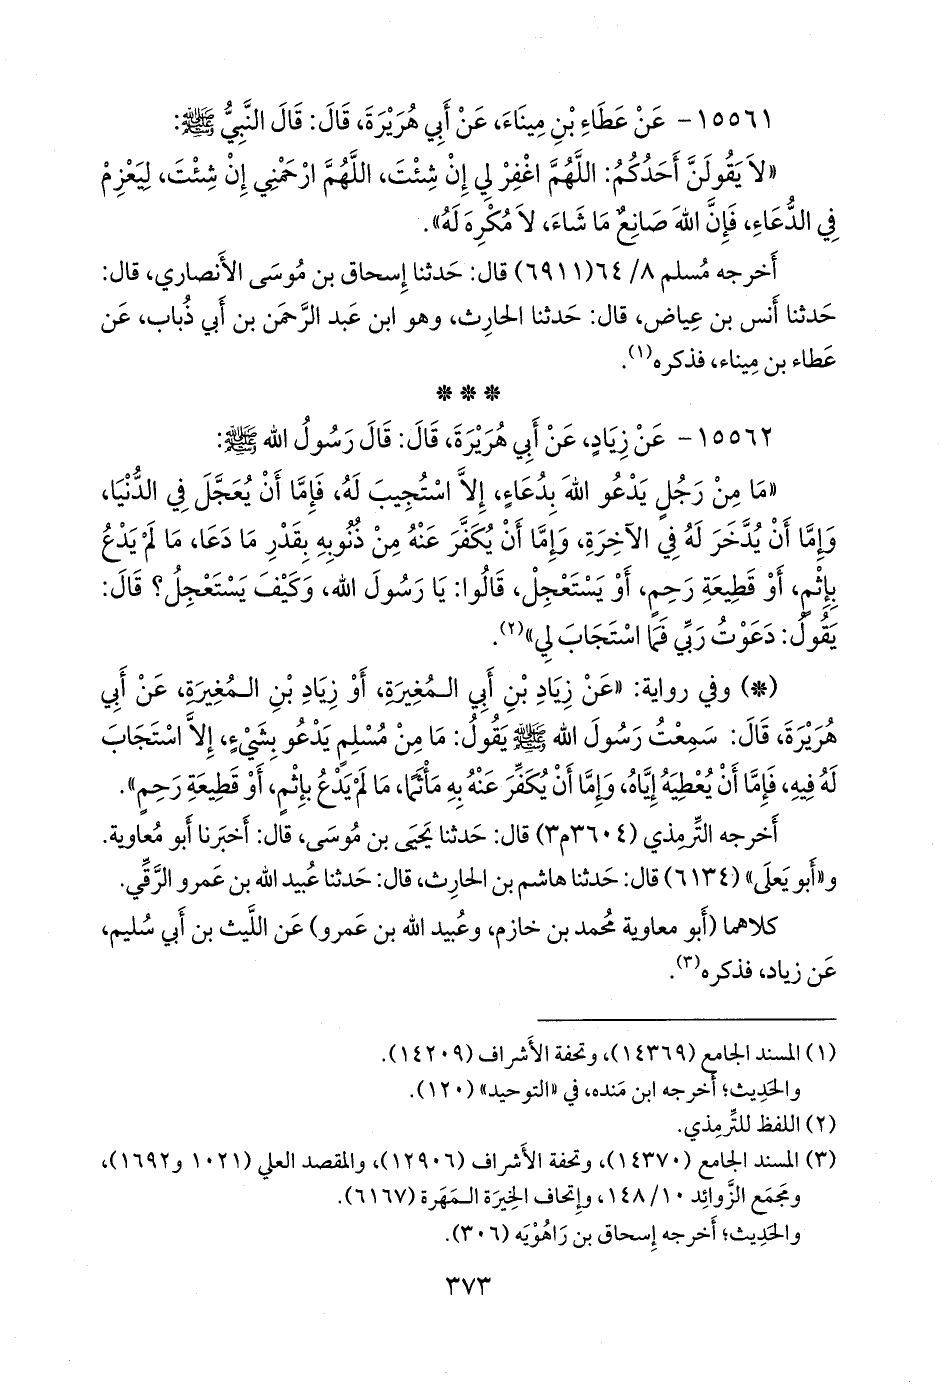 ١٥٥٦١ - عَنْ عَطَاءِ بْنِ مِينَاءَ، عَنْ أَبِي هُرَيْرَةَ، قَالَ: قَالَ النَّبِيُّ ﷺ:
«لاَ يَقُولَنَّ أَحَدُكُمُ: اللَّهُمَّ اغْفِرْ لِي إِنْ شِئْتَ، اللَّهُمَّ ارْحَمْنِي إِنْ شِئْتَ، لِيَعْزِمْ
فِي الدُّعَاءِ، فَإِنَّ اللهَ صَانِعٌ مَا شَاءَ، لاَ مُكْرِهَ لَهُ».
أَخرجه مُسلم ٨/ ٦٤(٦٩١١) قال: حَدثنا إِسحاق بن مُوسَى الأَنصاري، قال:
حَدثنا أَنس بن عِياض، قال: حَدثنا الحارِث، وهو ابن عَبد الرَّحمَن بن أَبي ذُباب، عَن
عَطاء بن مِيناء، فذكره(١).
* * *
١٥٥٦٢ - عَنْ زِيَادٍ، عَنْ أَبِي هُرَيْرَةَ، قَالَ: قَالَ رَسُولُ الله ﷺ:
«مَا مِنْ رَجُلٍ يَدْعُو اللهَ بِدُعَاءٍ، إِلاَّ اسْتُجِيبَ لَهُ، فَإِمَّا أَنْ يُعَجَّلَ فِي الدُّنْيَا،
وَإِمَّا أَنْ يُدَّخَرَ لَهُ فِي الآخِرَةِ، وَإِمَّا أَنْ يُكَفَّرَ عَنْهُ مِنْ ذُنُوبِهِ بِقَدْرِ مَا دَعَا، مَا لَمْ يَدْعُ
بِإِثْمٍ، أَوْ قَطِيعَةِ رَحِمٍ، أَوْ يَسْتَعْجِلْ، قَالُوا: يَا رَسُولَ الله، وَكَيْفَ يَسْتَعْجِلُ؟ قَالَ:
يَقُولُ: دَعَوْتُ رَبِّي فَمَا اسْتَجَابَ لِي»(٢).
(*) وفي رواية: «عَنْ زِيَادِ بْنِ أَبِي الـمُغِيرَةِ، أَوْ زِيَادِ بْنِ الـمُغِيرَةِ، عَنْ أَبِي
هُرَيْرَةَ، قَالَ: سَمِعْتُ رَسُولَ الله ﷺ يَقُولُ: مَا مِنْ مُسْلِمٍ يَدْعُو بِشَيْءٍ، إِلاَّ اسْتَجَابَ
لَهُ فِيهِ، فَإِمَّا أَنْ يُعْطِيَهُ إِيَّاهُ، وَإِمَّا أَنْ يُكَفِّرَ عَنْهُ بِهِ مَأْثَمًا، مَا لَمْ يَدْعُ بِإِثْمٍ، أَوْ قَطِيعَةِ رَحِمٍ».
أَخرجه التِّرمِذي (٣٦٠٤م٣) قال: حَدثنا يَحيَى بن مُوسَى، قال: أَخبَرنا أَبو مُعاوية.
و«أَبو يَعلَى» (٦١٣٤) قال: حَدثنا هاشم بن الحارِث، قال: حَدثنا عُبيد الله بن عَمرو الرَّقِّي.
كلاهما (أَبو معاوية مُحمد بن خازم، وعُبيد الله بن عَمرو) عَن اللَّيث بن أَبي سُليم،
عَن زياد، فذكره(٣).
(١) المسند الجامع (١٤٣٦٩)، وتحفة الأَشراف (١٤٢٠٩).
والحَدِيث؛ أَخرجه ابن مَنده، في «التوحيد» (١٢٠).
(٢) اللفظ للتِّرمِذي.
(٣) المسند الجامع (١٤٣٧٠)، وتحفة الأَشراف (١٢٩٠٦)، والمقصد العلي (١٠٢١ و١٦٩٢)،
ومَجمَع الزَّوائِد ١٠/ ١٤٨، وإِتحاف الخِيرَة الـمَهَرة (٦١٦٧).
والحَدِيث؛ أَخرجه إِسحاق بن رَاهُوْيَه (٣٠٦).
٣٧٣